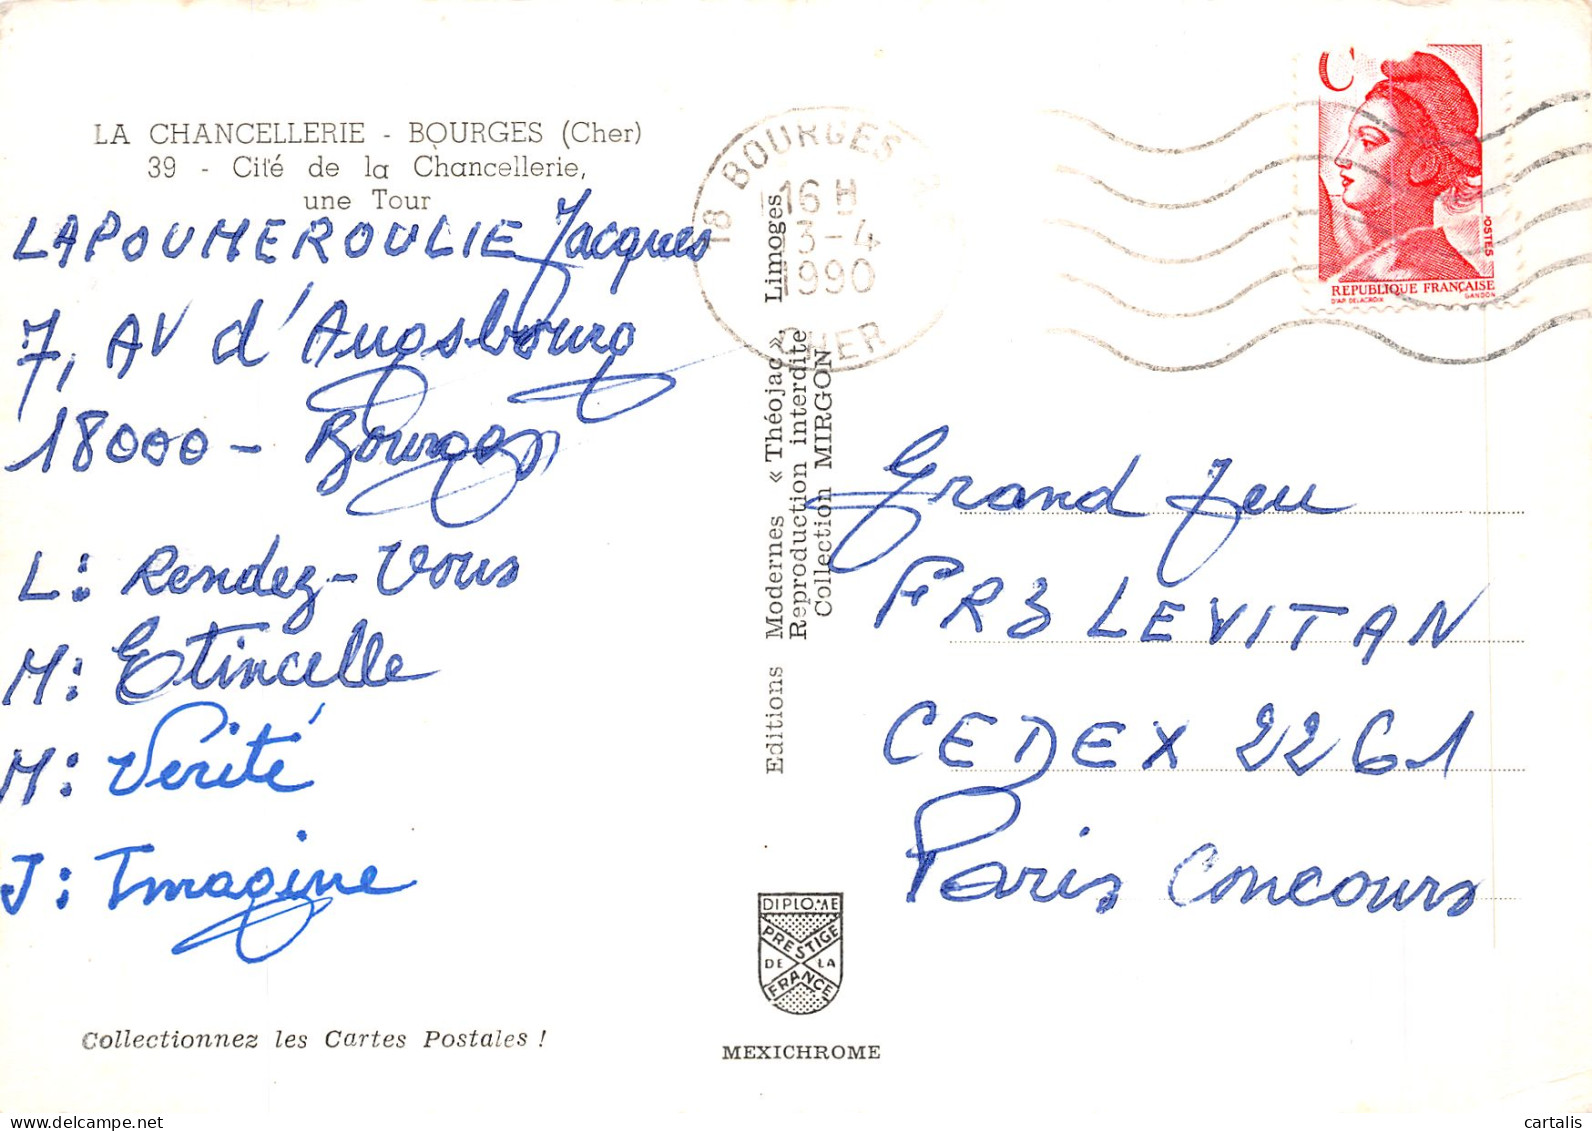 LA CHANCELLERIE - BOURGES (Cher)
39 - Cité de la Chancellerie,
une Tour
LAPOUMEROULIE Jacques
7, AV d'Augsbourg
18000 - Bourges
L: Rendez-Vous
M: Etincelle
M: Vérité
J: Imagine
Collectionnez les Cartes Postales !
18 BOURGES
16 H
3-4
1990
CHER
Editions Modernes « Théojac », Limoges
Reproduction interdite
Collection MIRGON
DIPLOME
PRESTIGE
DE LA
FRANCE
MEXICHROME
C
POSTES
REPUBLIQUE FRANÇAISE
D'AP. DELACROIX GANDON
Grand Jeu
FR3 LEVITAN
CEDEX 2261
Paris Concours
cartalis